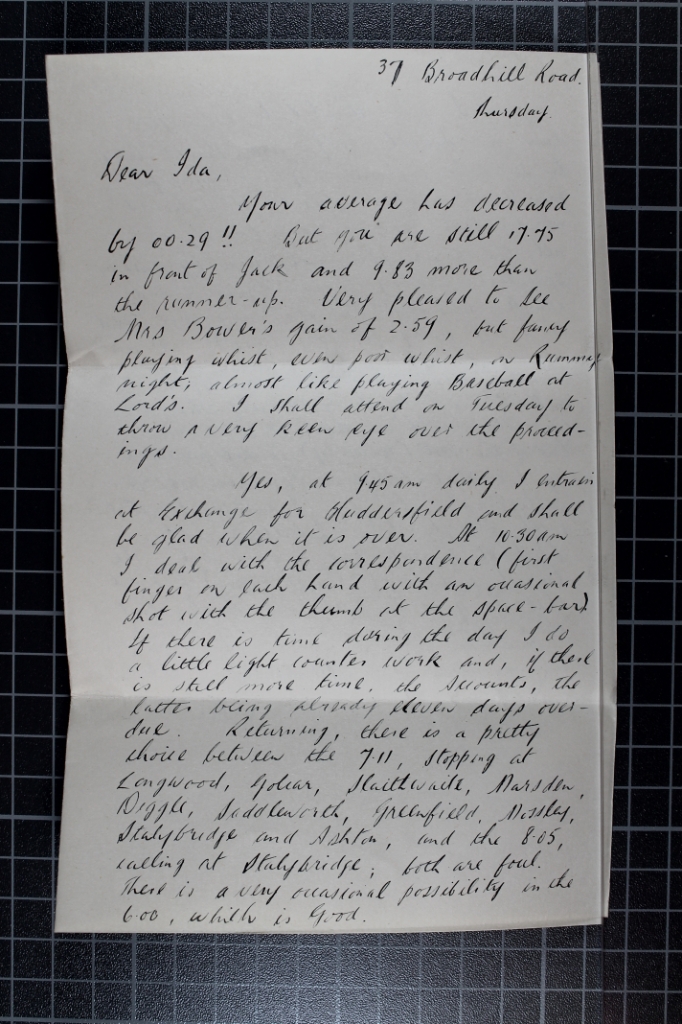 37 Broadhill Road.
Thursday.
Dear Ida,
Your average has decreased
by 00.29 !! But you are still 17.75
in front of Jack and 9.83 more than
the runner-up. Very pleased to see
Mrs Bower's gain of 2.59, but fancy
playing whist, even poor whist, on Rummy
night, almost like playing Baseball at
Lord's. I shall attend on Tuesday to
throw a very keen eye over the proceed-
ings.
Yes, at 9.45 am daily I entrain
at Exchange for Huddersfield and shall
be glad when it is over. At 10.30am
I deal with the correspondence (first
finger on each hand with an occasional
shot with the thumb at the space-bar)
If there is time during the day I do
a little light counter work and, if there
is still more time, the accounts, the
latter being already eleven days over-
due. Returning, there is a pretty
choice between the 7.11, stopping at
Longwood, Golcar, Slaithwaite, Marsden,
Diggle, Saddleworth, Greenfield, Mossley,
Stalybridge and Ashton, and the 8.05,
calling at Stalybridge; both are foul.
There is a very occasional possibility in the
6.00, which is Good.